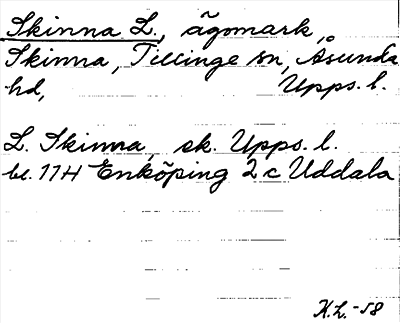 Skinna L., ägomark,
Skinna, Tillinge sn, Åsunda
hd, Upps. l.
L. Skinna, sk. Upps. l.
bl. 11H Enköping 2 c Uddala
K.L. -58